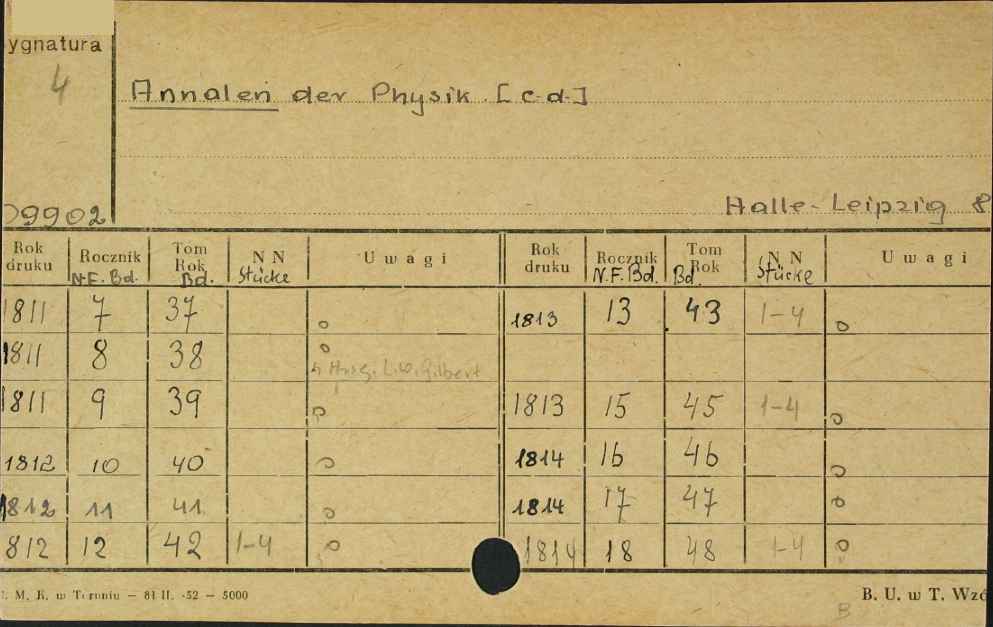 ygnatura
4
Annalen der Physik [c.d.]
09902
Halle-Leipzig 8
Rok druku | Rocznik N.F. Bd. | Tom Rok Bd. | N N Stücke | Uwagi | Rok druku | Rocznik N.F. Bd. | Tom Rok Bd. | N N Stücke | Uwagi
1811 7 37 o 1813 13 43 1-4 o
1811 8 38 o Hrsg. L.W. Gilbert
1811 9 39 o 1813 15 45 1-4 o
1812 10 40 o 1814 16 46 o
1812 11 41 o 1814 17 47 o
812 12 42 1-4 o 1814 18 48 1-4 o
. M. K. w Toruniu — 81 II. -52 — 5000
B. U. w T. Wzó
B